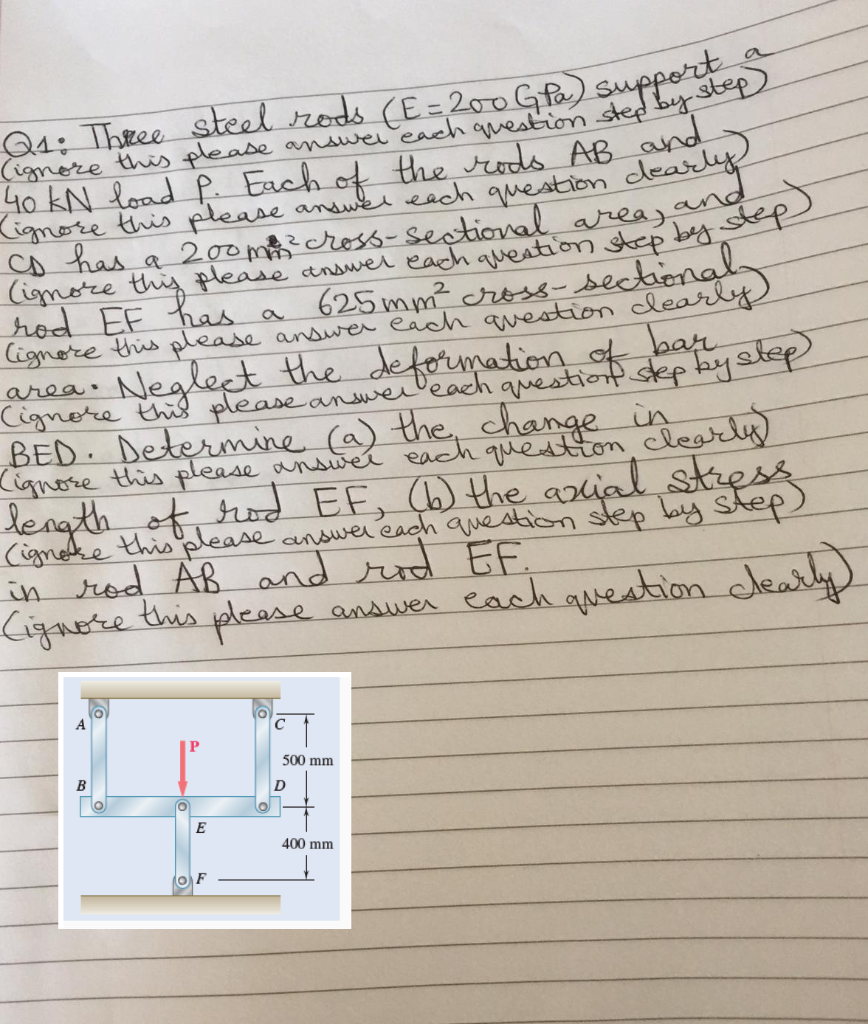 Q1: Three steel rods (E=200 GPa) support a
(ignore this please answer each question step by step)
40 kN load P. Each of the rods AB and
(ignore this please answer each question clearly)
CD has a 200 mm² cross-sectional area, and
(ignore this please answer each question step by step)
rod EF has a 625mm² cross-sectional
(ignore this please answer each question clearly)
area. Neglect the deformation of bar
(ignore this please answer each question step by step)
BED. Determine (a) the change in
(ignore this please answer each question clearly)
length of rod EF, (b) the axial stress
(ignore this please answer each question step by step)
in rod AB and rod EF.
(ignore this please answer each question clearly)
A
C
P
500 mm
B
D
E
400 mm
F